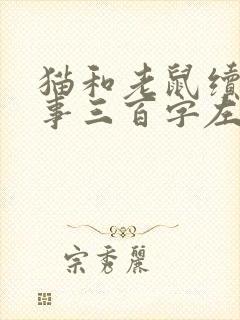 猫和老鼠续
事三百字左
宗秀丽